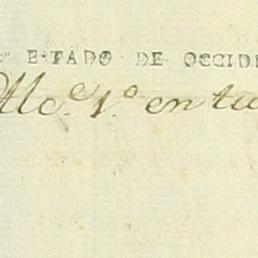 ESTADO DE OCCID
Alc.e 1.o en tu